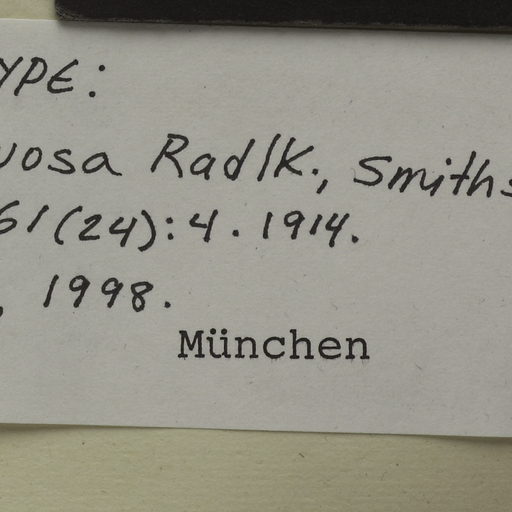 YPE:
uosa Radlk., Smiths
61(24):4. 1914.
, 1998.
München